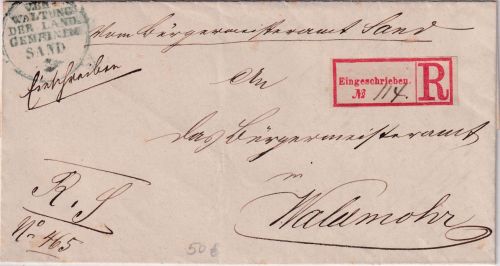 VER
WALTUNG
DER LAND
GEMEINDE
SAND
Vom Bürgermeisteramt Sand
Einschreiben
An
Eingeschrieben.
№ 114.
R
das Bürgermeisteramt
in
R. S
Waldmohr
No 465
50 €